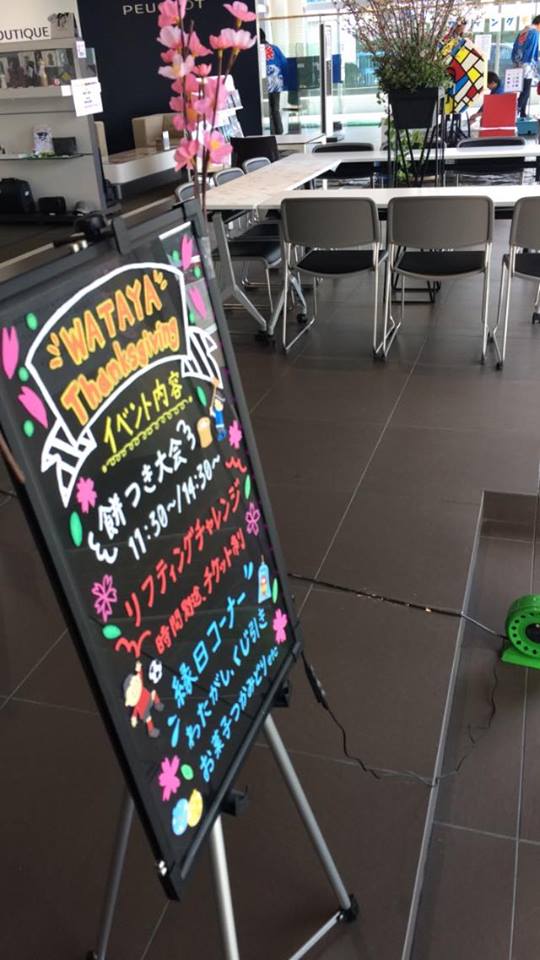 PEUGEOT
BOUTIQUE
WATAYA
Thanksgiving
イベント内容
餅つき大会
11:30~/14:30~
リフティングチャレンジ
時間制、チケットあり
縁日コーナー
わたがし、くじ引き
お菓子つかみどりetc